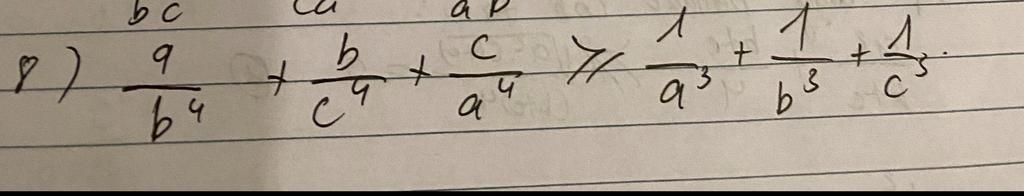 bc ca ab
8) a/b⁴ + b/c⁴ + c/a⁴ ≥ 1/a³ + 1/b³ + 1/c³.